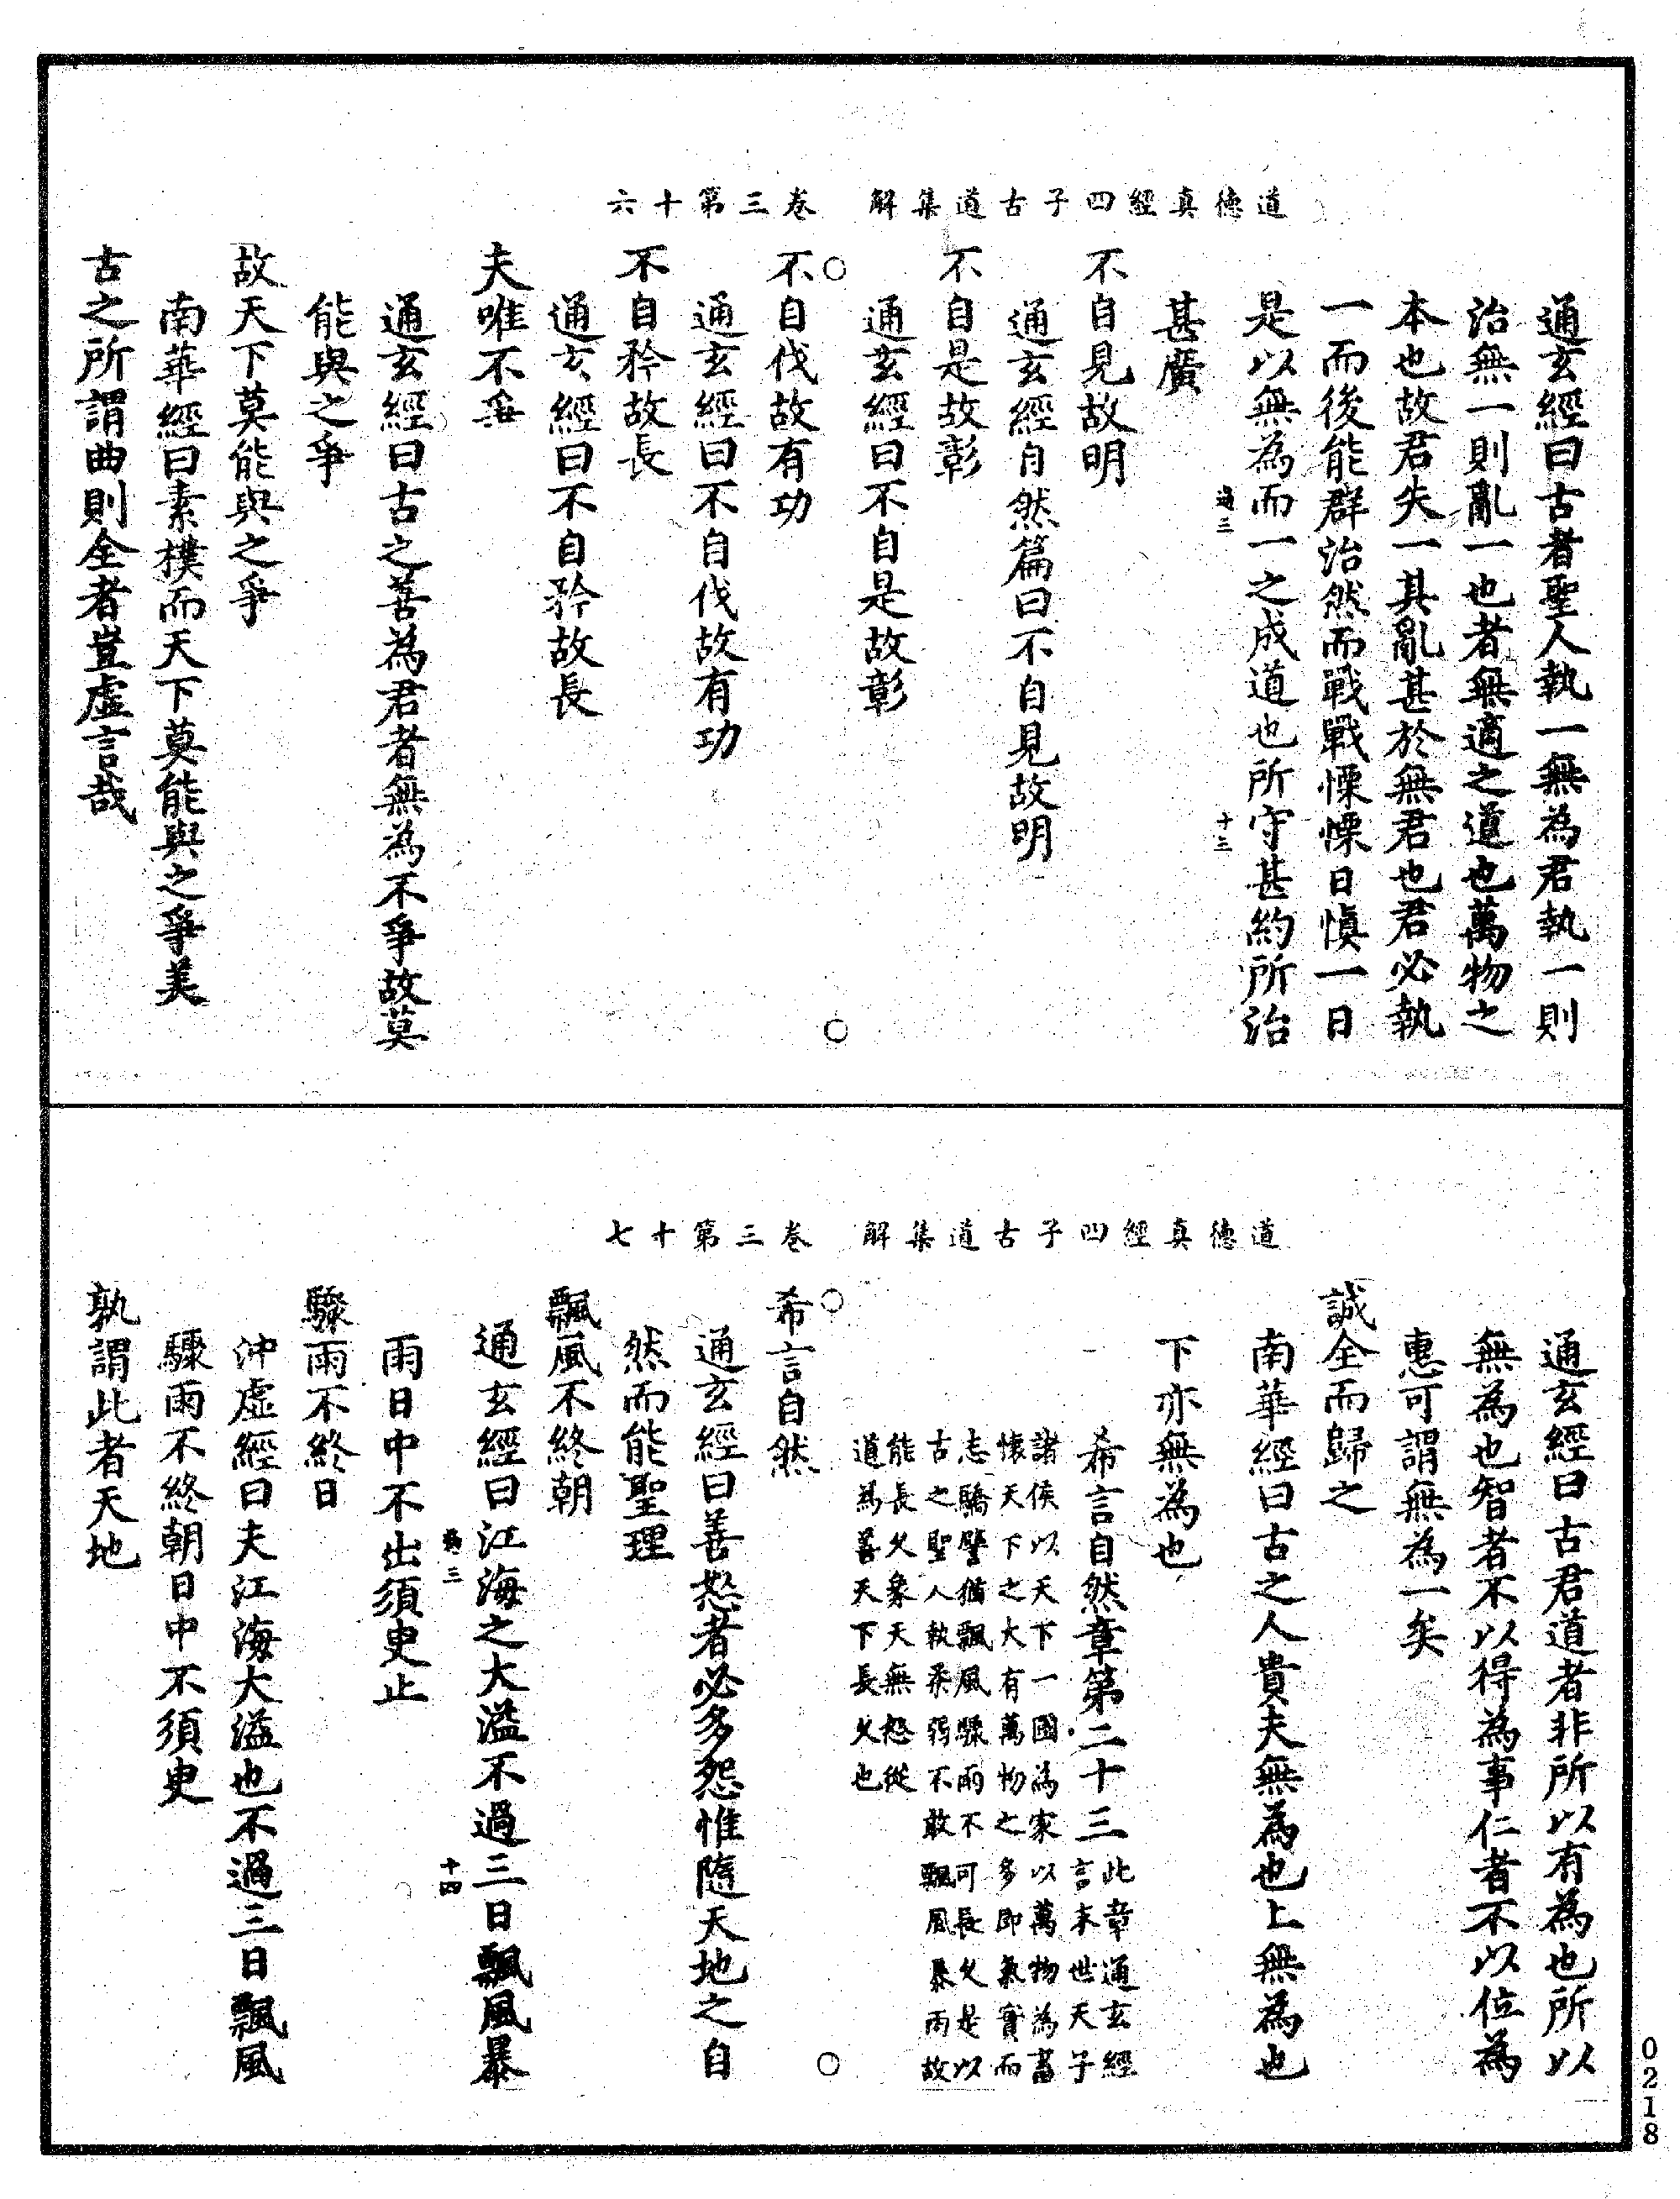 道德真經四子古道集解　卷三第十六
通玄經曰古者聖人執一無為君執一則
治無一則亂一也者無適之道也萬物之
本也故君失一其亂甚於無君也君必執
一而後能群治然而戰戰慄慄日慎一日
是以無為而一之成道也所守甚約所治
過三　十三
甚廣
不自見故明
通玄經自然篇曰不自見故明
不自是故彰
通玄經曰不自是故彰
○　○
不自伐故有功
通玄經曰不自伐故有功
不自矜故長
通玄經曰不自矜故長
夫唯不爭
通玄經曰古之善為君者無為不爭故莫
能與之爭
故天下莫能與之爭
南華經曰素樸而天下莫能與之爭美
古之所謂曲則全者豈虛言哉
道德真經四子古道集解　卷三第十七
通玄經曰古君道者非所以有為也所以
無為也智者不以得為事仁者不以位為
惠可謂無為一矣
誠全而歸之
南華經曰古之人貴夫無為也上無為也
下亦無為也
希言自然章第二十三此章通玄經
言末世天子
諸侯以天下一國為家以萬物為畜
懷天下之大有萬物之多即氣實而
志驕譬猶飄風驟雨不可長久是以
古之聖人執柔弱不敢飄風暴雨故
能長久象天無怨從
道為善天下長久也
○　○
希言自然
通玄經曰善怒者必多怨惟隨天地之自
然而能聖理
飄風不終朝
通玄經曰江海之大溢不過三日飄風暴
三　十四
雨日中不出須臾止
驟雨不終日
沖虛經曰夫江海大溢也不過三日飄風
驟雨不終朝日中不須臾
孰謂此者天地
0218